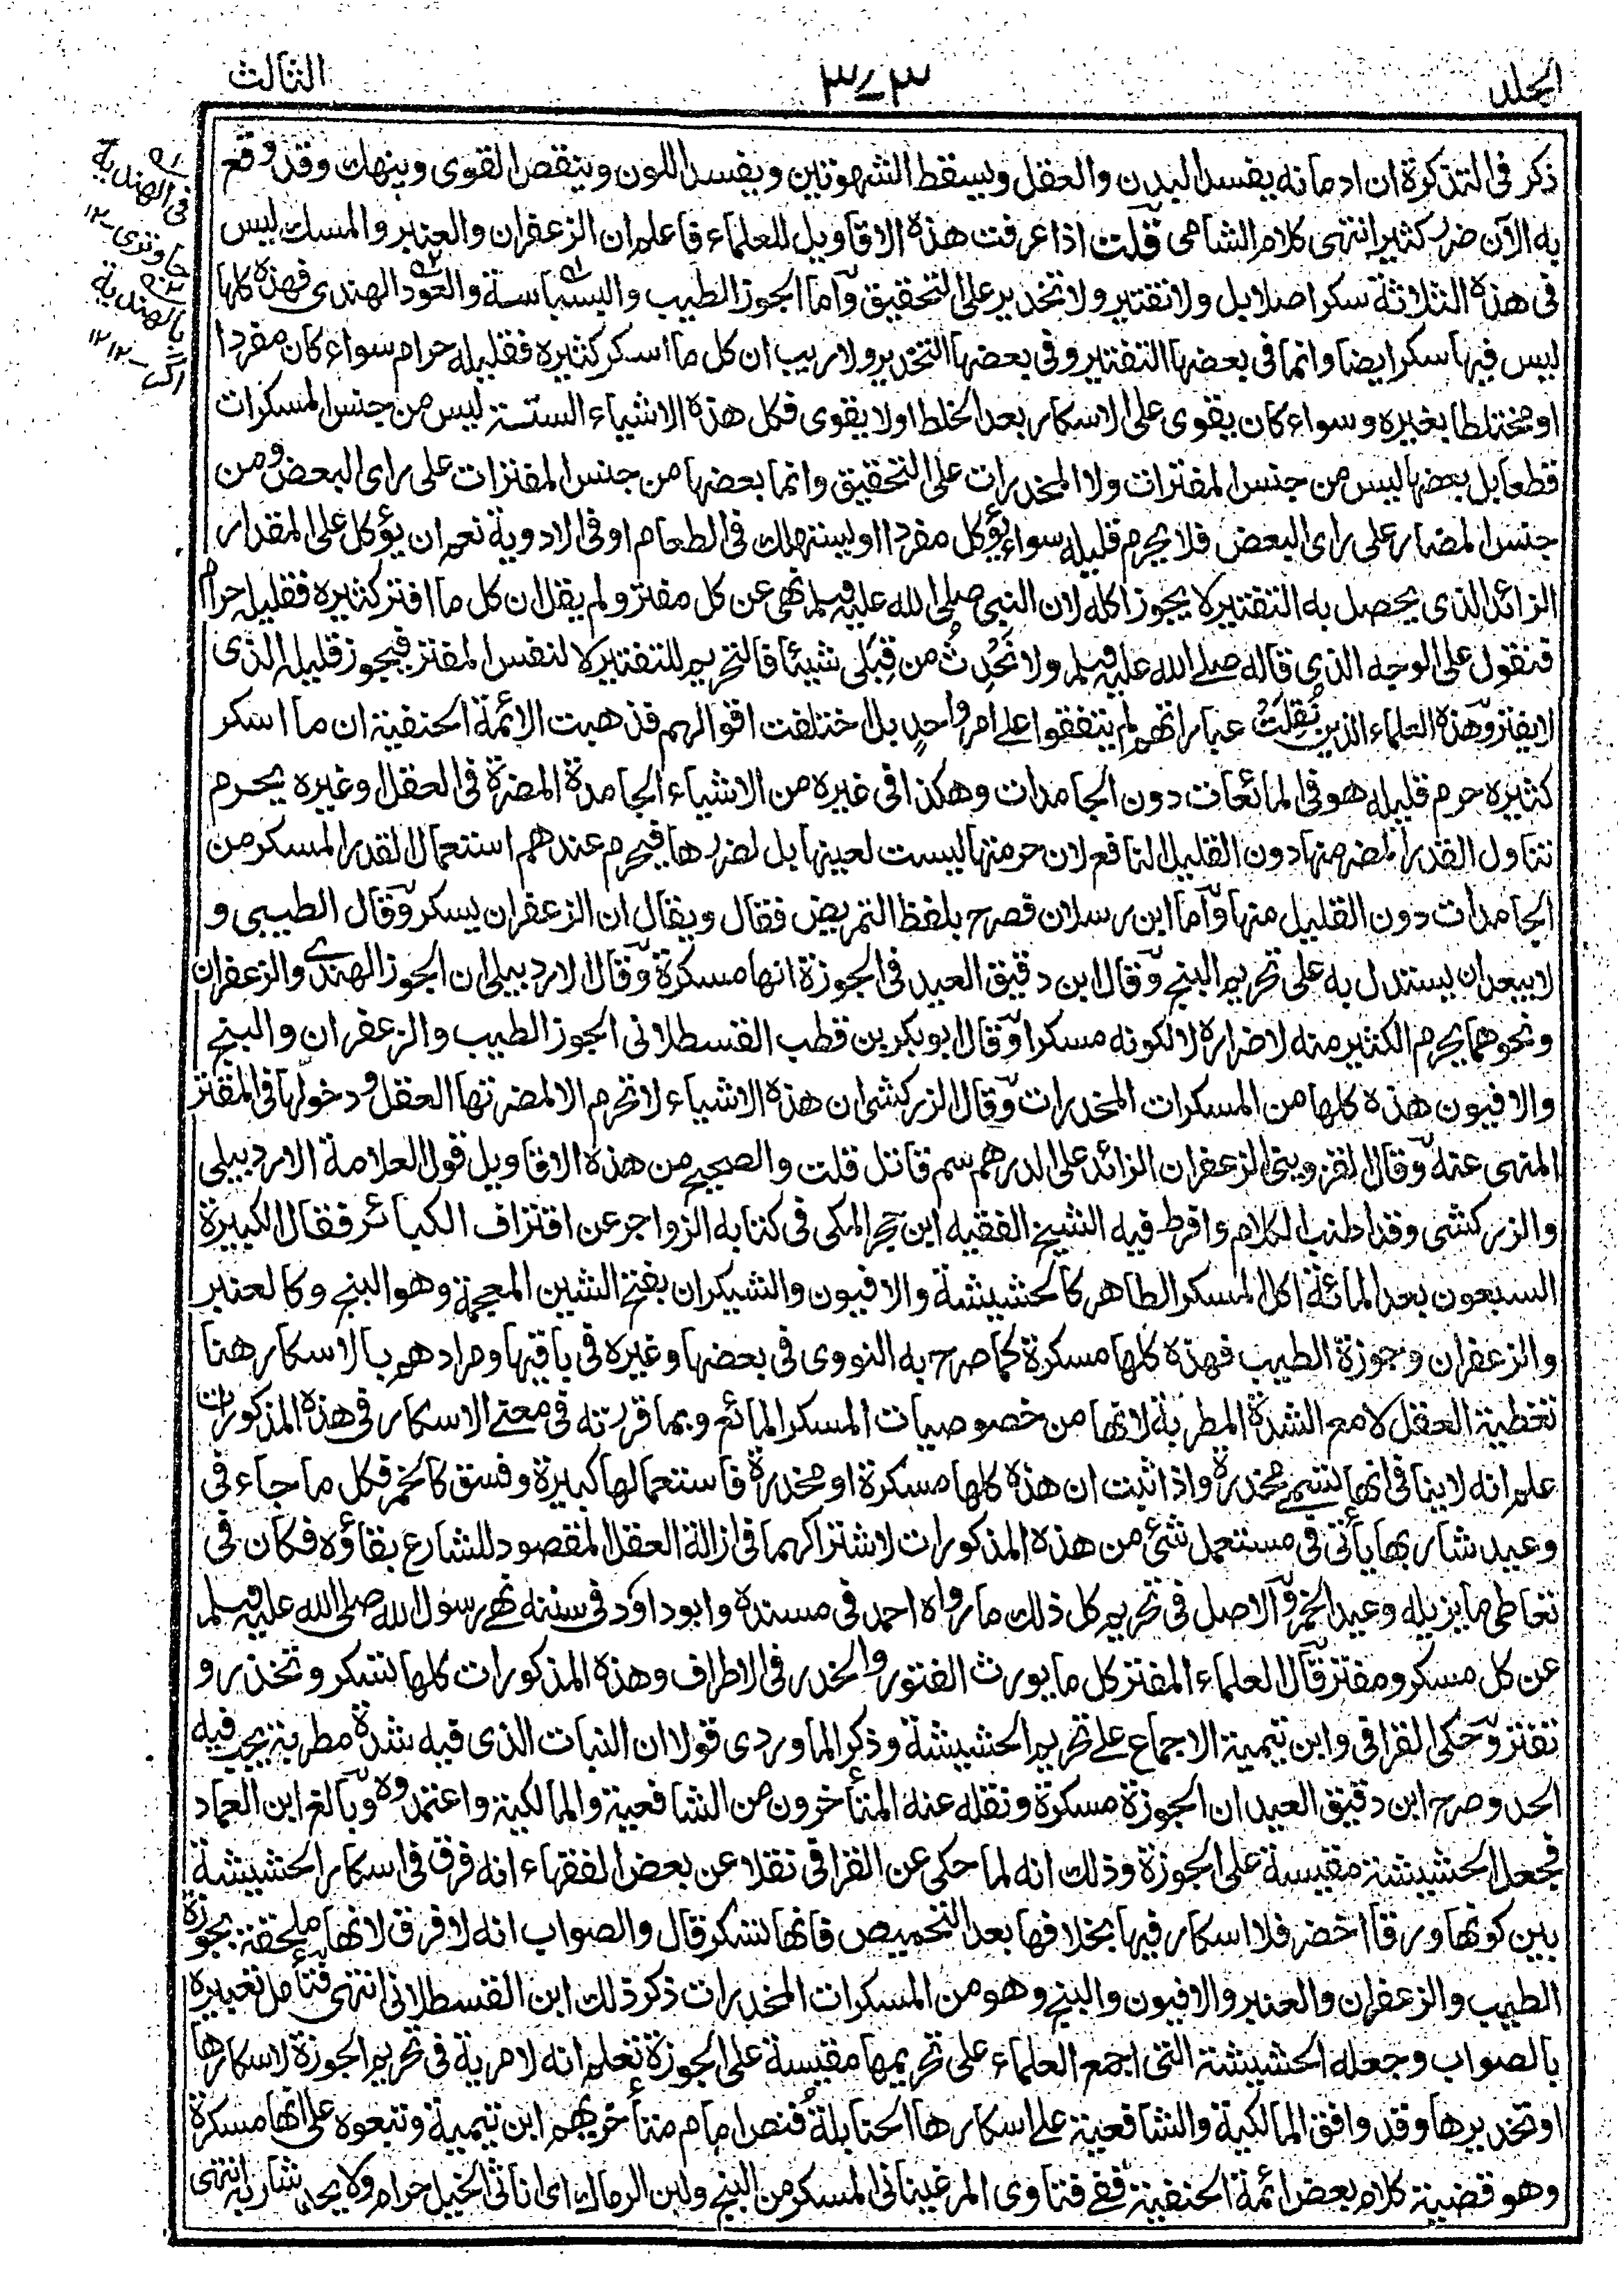 الجلد
٣٧٣
الثالث
ذكر فى التذكرة ان ادمانه يفسد البدن والعقل ويسقط الشهوتين ويفسد اللون وينقص القوى وينهك وقد وقع
به الآن ضرر كثير انتهى كلام الشامى قلت اذا عرفت هذه الاقاويل للعلماء فاعلم ان الزعفران والعنبر والمسك ليس
فى هذه الثلاثة سكر اصلا بل ولا تفتير ولا تخدير على التحقيق وآما الجوز الطيب والبسباسة والعود الهندى فهذه كلها
ليس فيها سكر ايضا وانما فى بعضها التفتير وفى بعضها التخدير ولا ريب ان كل ما اسكر كثيره فقليله حرام سواء كان مفردا
او مختلطا بغيره وسواء كان يقوى على الاسكار بعد الخلط او لا يقوى فكل هذه الاشياء الستة ليس من جنس المسكرات
قطعا بل بعضها ليس من جنس المفترات ولا المخدرات على التحقيق وانما بعضها من جنس المفترات على راى البعض ومن
جنس المضار على راى البعض فلا يحرم قليله سواء يؤكل مفردا او يستهلك فى الطعام او فى الادوية نعم ان يؤكل على المقدار
الزائد الذى يحصل به التفتير لا يجوز اكله لان النبى صلى الله عليه وسلم نهى عن كل مفتر ولم يقل ان كل ما افتر كثيره فقليله حرام
فنقول على الوجه الذى قاله صلى الله عليه وسلم ولا نُحْدِثُ من قِبَلى شيئا فالتحريم للتفتير لا لنفس المفتر فيجوز قليله الذى
لا يفتر وهذه العلماء الذين نُقِلَتْ عباراتهم لم يتفقوا على امر واحدٍ بل اختلفت اقوالهم فذهبت الائمة الحنفية ان ما اسكر
كثيره حرم قليله هو فى المائعات دون الجامدات وهكذا فى غيره من الاشياء الجامدة المضرة فى العقل او غيره يحرم
تناول القدر المضر منها دون القليل النافع لان حرمتها ليست لعينها بل لضررها فيحرم عندهم استعمال القدر المسكر من
الجامدات دون القليل منها وآما ابن رسلان فصرح بلفظ التمريض فقال ويقال ان الزعفران يسكر وقال الطيبى و
لا يبعد ان يستدل به على تحريم البنج وقال ابن دقيق العيد فى الجوزة انها مسكرة وقال الاردبيلى ان الجوز الهندى والزعفران
ونحوهما يحرم الكثير منه لاضراره لا لكونه مسكرا وقال ابو بكر بن قطب القسطلانى الجوز الطيب والزعفران والبنج
والافيون هذه كلها من المسكرات المخدرات وقال الزركشى ان هذه الاشياء لا تحرم الا لمضرتها العقل ودخولها فى المفتر
المنهى عنه وقال القزوينى الزعفران الزائد على الدرهم سم قاتل قلت والصحيح من هذه الاقاويل قول العلامة الاردبيلى
والزركشى وقد اطنب الكلام وافرط فيه الشيخ الفقيه ابن حجر المكى فى كتابه الزواجر عن اقتراف الكبائر فقال الكبيرة
السبعون بعد المائة اكل المسكر الطاهر كالحشيشة والافيون والشيكران بفتح الشين المعجمة وهو البنج وكالعنبر
والزعفران وجوزة الطيب فهذه كلها مسكرة كما صرح به النووى فى بعضها وغيره فى باقيها ومرادهم بالاسكار هنا
تغطية العقل لا مع الشدة المطربة لانها من خصوصيات المسكر المائع وبما قررته فى معنى الاسكار فى هذه المذكورات
علم انه لا ينافى انها تسمى مخدرة واذا ثبت ان هذه كلها مسكرة او مخدرة فاستعمالها كبيرة وفسق كالخمر فكل ما جاء فى
وعيد شاربها يأتى فى مستعمل شئ من هذه المذكورات لاشتراكهما فى ازالة العقل المقصود للشارع بقاؤه فكان فى
تعاطى ما يزيله وعيد الخمر والاصل فى تحريم كل ذلك ما رواه احمد فى مسنده وابو داؤد فى سننه نهى رسول الله صلى الله عليه وسلم
عن كل مسكر ومفتر قال العلماء المفتر كل ما يورث الفتور والخدر فى الاطراف وهذه المذكورات كلها تسكر وتخدر و
تفتر وحكى القرافى وابن تيمية الاجماع على تحريم الحشيشة وذكر الماوردى قولا ان النبات الذى فيه شدة مطربة يجب فيه
الحد وصرح ابن دقيق العيد ان الجوزة مسكرة ونقله عنه المتأخرون من الشافعية والمالكية واعتمدوه وبالغ ابن العماد
فجعل الحشيشة مقيسة على الجوزة وذلك انه لما حكى عن القرافى نقلا عن بعض الفقهاء انه فرق فى اسكار الحشيشة
بين كونها ورقا اخضر فلا اسكار فيها بخلافها بعد التحميص فانها تسكر قال والصواب انه لا فرق لانها ملحقة بجوزة
الطيب والزعفران والعنبر والافيون والبنج وهو من المسكرات المخدرات ذكر ذلك ابن القسطلانى انتهى فتأمل تعبيره
بالصواب وجعله الحشيشة التى اجمع العلماء على تحريمها مقيسة على الجوزة تعلم انه لا مرية فى تحريم الجوزة لاسكارها
او تخديرها وقد وافق المالكية والشافعية على اسكارها الحنابلةُ فنص امام متأخريهم ابن تيمية وتبعوه على انها مسكرة
وهو قضية كلام بعض ائمة الحنفية ففى فتاوى المرغينانى المسكر من البنج ولبن الرماك اى اناثى الخيل حرام ولا يحد شاربه انتهى
٩١
فى الهندية
جاوترى ـ ١٢
٩٢
بالهندية
اگر ـ ١٢ ١٢